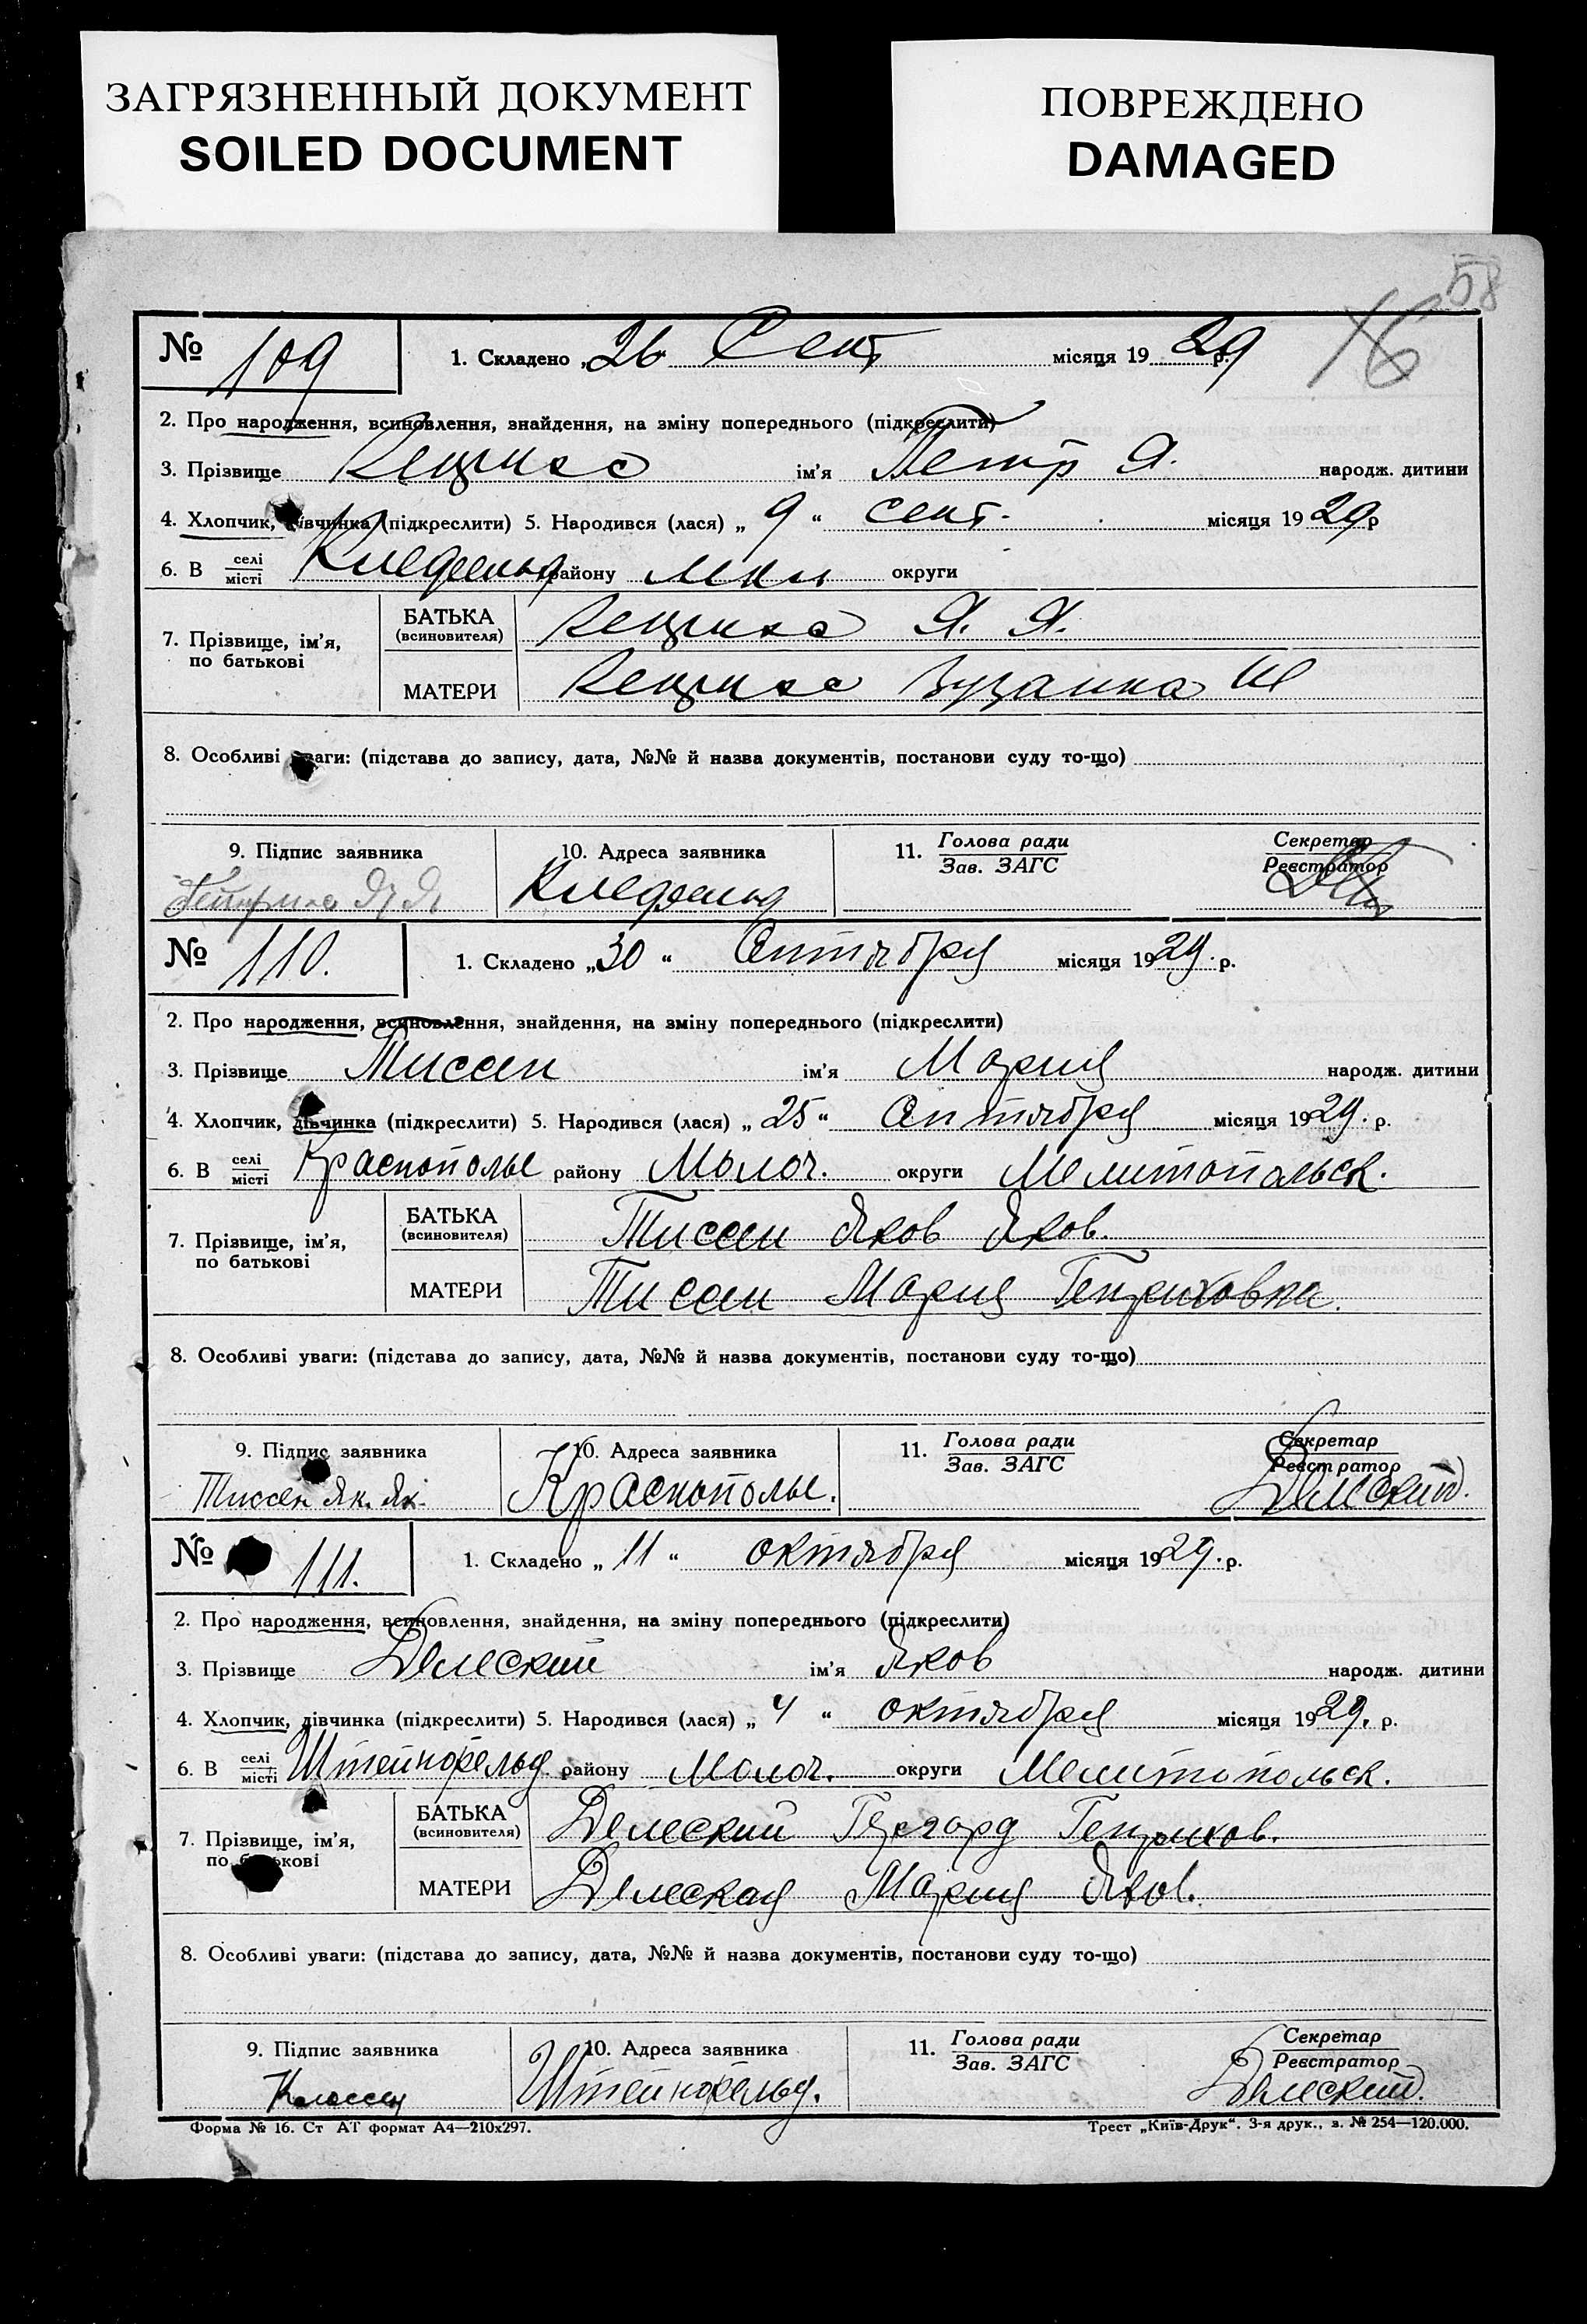 ЗАГРЯЗНЕННЫЙ ДОКУМЕНТ
SOILED DOCUMENT
ПОВРЕЖДЕНО
DAMAGED
58
16
№ 109
1. Складено „26 Сент місяця 1929 р.
2. Про народження, всиновлення, знайдення, на зміну попереднього (підкреслити)
3. Прізвище ім'я Петр Я. народж. дитини
4. Хлопчик, дівчинка (підкреслити) 5. Народився (лася) „ 9 “ сент. місяця 1929 р
6. В селі/місті Клефельд району округи
7. Прізвище, ім'я, по батькові
БАТЬКА (всиновителя) Я. Я.
МАТЕРИ
8. Особливі уваги: (підстава до запису, дата, №№ й назва документів, постанови суду то-що)
9. Підпис заявника
10. Адреса заявника
11. Голова ради/Зав. ЗАГС
Секретар/Реєстратор
Клефельд
№ 110.
1. Складено „30 “ Сентября місяця 1929. р.
2. Про народження, всиновлення, знайдення, на зміну попереднього (підкреслити)
3. Прізвище Тиссен ім'я Мария народж. дитини
4. Хлопчик, дівчинка (підкреслити) 5. Народився (лася) „ 25 “ Сентября місяця 1929. р.
6. В селі/місті Краснополье району Молоч. округи Мелитопольск.
7. Прізвище, ім'я, по батькові
БАТЬКА (всиновителя) Тиссен Яков Яков.
МАТЕРИ Тиссен Мария Генриховна.
8. Особливі уваги: (підстава до запису, дата, №№ й назва документів, постанови суду то-що)
9. Підпис заявника
10. Адреса заявника
11. Голова ради/Зав. ЗАГС
Секретар/Реєстратор
Тиссен Як. Як.
Краснополье.
Делеский.
№ 111.
1. Складено „ 11 “ октября місяця 1929. р.
2. Про народження, всиновлення, знайдення, на зміну попереднього (підкреслити)
3. Прізвище Делеский ім'я Яков народж. дитини
4. Хлопчик, дівчинка (підкреслити) 5. Народився (лася) „ 4 “ октября місяця 1929. р.
6. В селі/місті Штейнфельд. району Молоч. округи Мелитопольск.
7. Прізвище, ім'я, по батькові
БАТЬКА (всиновителя) Делеский Гергард Генрихов.
МАТЕРИ Делеская Мария Яков.
8. Особливі уваги: (підстава до запису, дата, №№ й назва документів, постанови суду то-що)
9. Підпис заявника
10. Адреса заявника
11. Голова ради/Зав. ЗАГС
Секретар/Реєстратор
Классен
Штейнфельд.
Делеский.
Форма № 16. Ст АТ формат А4—210х297.
Трест „Київ-Друк“. 3-я друк., з. № 254—120.000.